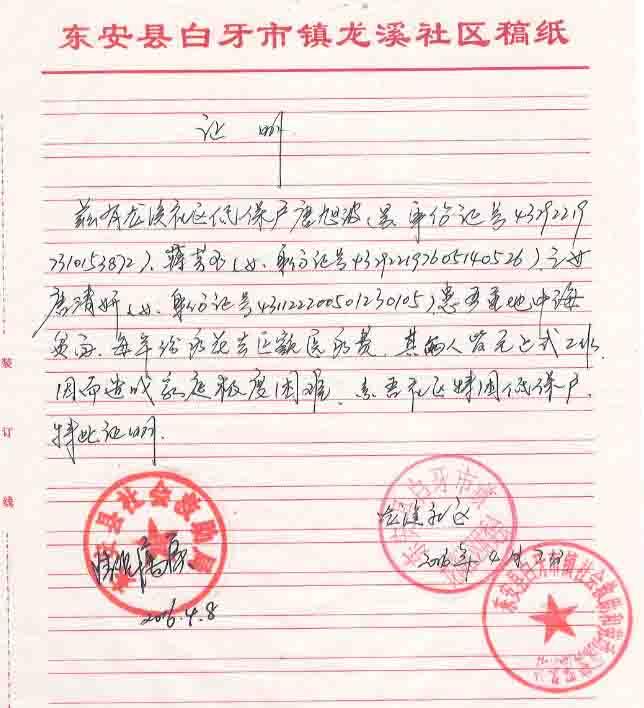 东安县白牙市镇龙溪社区稿纸
证明
兹有龙溪社区低保户唐旭波(男 身份证号4329219
7310153872)、蒋芳(女、身份证号432922197605140526)之女
唐清妍(女、身份证号431122200501230105)患重地中海
贫血、每年份需花去巨额医药费、其人皆无正式工作
因而造成家庭极度困难、系吾社区特困低保户、
特此证明.
装订线
东安县社会救助局
情况属实
2016.4.8
东安县白牙市镇
龙溪社区
2016年4月
东安县白牙市镇社会救助和